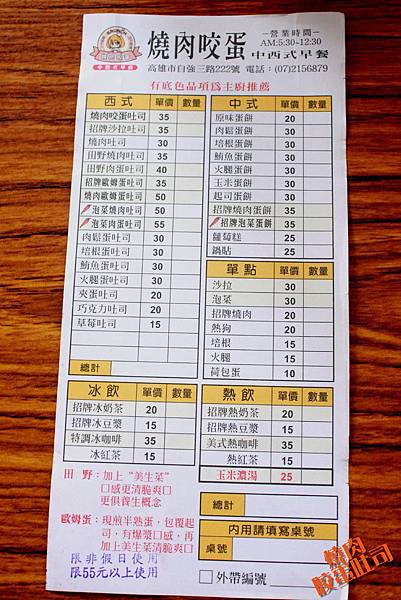 燒肉咬蛋
－營業時間－
AM:5:30-12:30
中西式早餐
高雄市自強三路222號 電話：(07)2156879
有底色品項為主廚推薦
西式 單價 數量
燒肉咬蛋吐司 35
招牌沙拉吐司 35
燒肉吐司 30
田野燒肉吐司 35
田野肉蛋吐司 40
招牌歐姆蛋吐司 35
燒肉歐姆蛋吐司 50
泡菜燒肉吐司 50
泡菜肉蛋吐司 55
肉鬆蛋吐司 30
培根蛋吐司 30
鮪魚蛋吐司 30
火腿蛋吐司 30
夾蛋吐司 20
巧克力吐司 20
草莓吐司 15
總計
中式 單價 數量
原味蛋餅 20
肉鬆蛋餅 30
培根蛋餅 30
鮪魚蛋餅 30
火腿蛋餅 30
玉米蛋餅 30
起司蛋餅 30
招牌燒肉蛋餅 35
招牌泡菜蛋餅 35
蘿蔔糕 25
鍋貼 25
單點
沙拉 30
泡菜 30
招牌燒肉 35
熱狗 15
培根 15
火腿 15
荷包蛋 10
冰飲 單價 數量
招牌冰奶茶 20
招牌冰豆漿 15
特調冰咖啡 35
冰紅茶 15
熱飲 單價 數量
招牌熱奶茶 20
招牌熱豆漿 15
美式熱咖啡 35
熱紅茶 15
玉米濃湯 25
田 野：加上“美生菜”
口感更清脆爽口
更俱養生概念
歐姆蛋：現煎半熟蛋，包覆起
司，有爆漿口感，再
加上美生菜清脆爽口
限非假日使用
限55元以上使用
總計
內用請填寫桌號
桌號
外帶編號
燒肉
咬蛋吐司